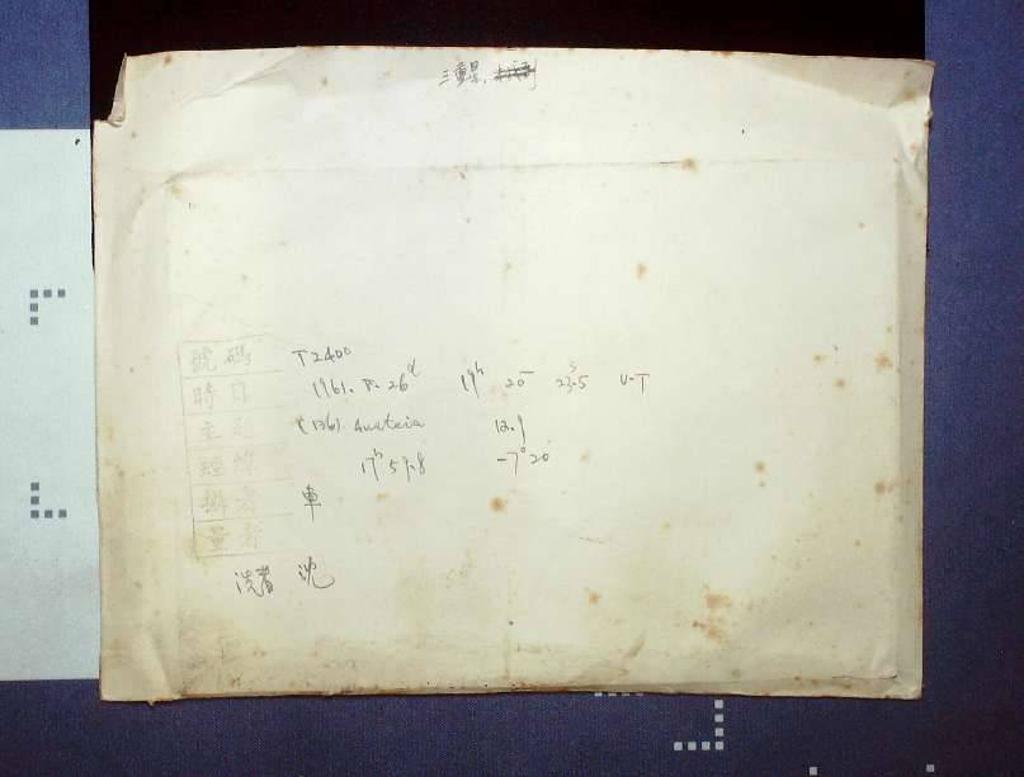 三重星.
號碼 T2400
時日 1961. 5. 26d 19h 20m 23s.5 U.T
主題 (136) Austria 12.9
17h 59.8 -7° 20'
攝者 車
量者
洗者 沈